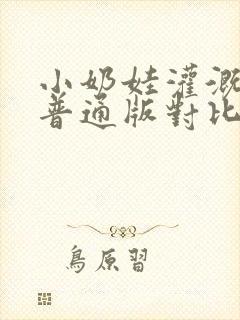 小奶娃灌溉
普通版對比
鳥原習